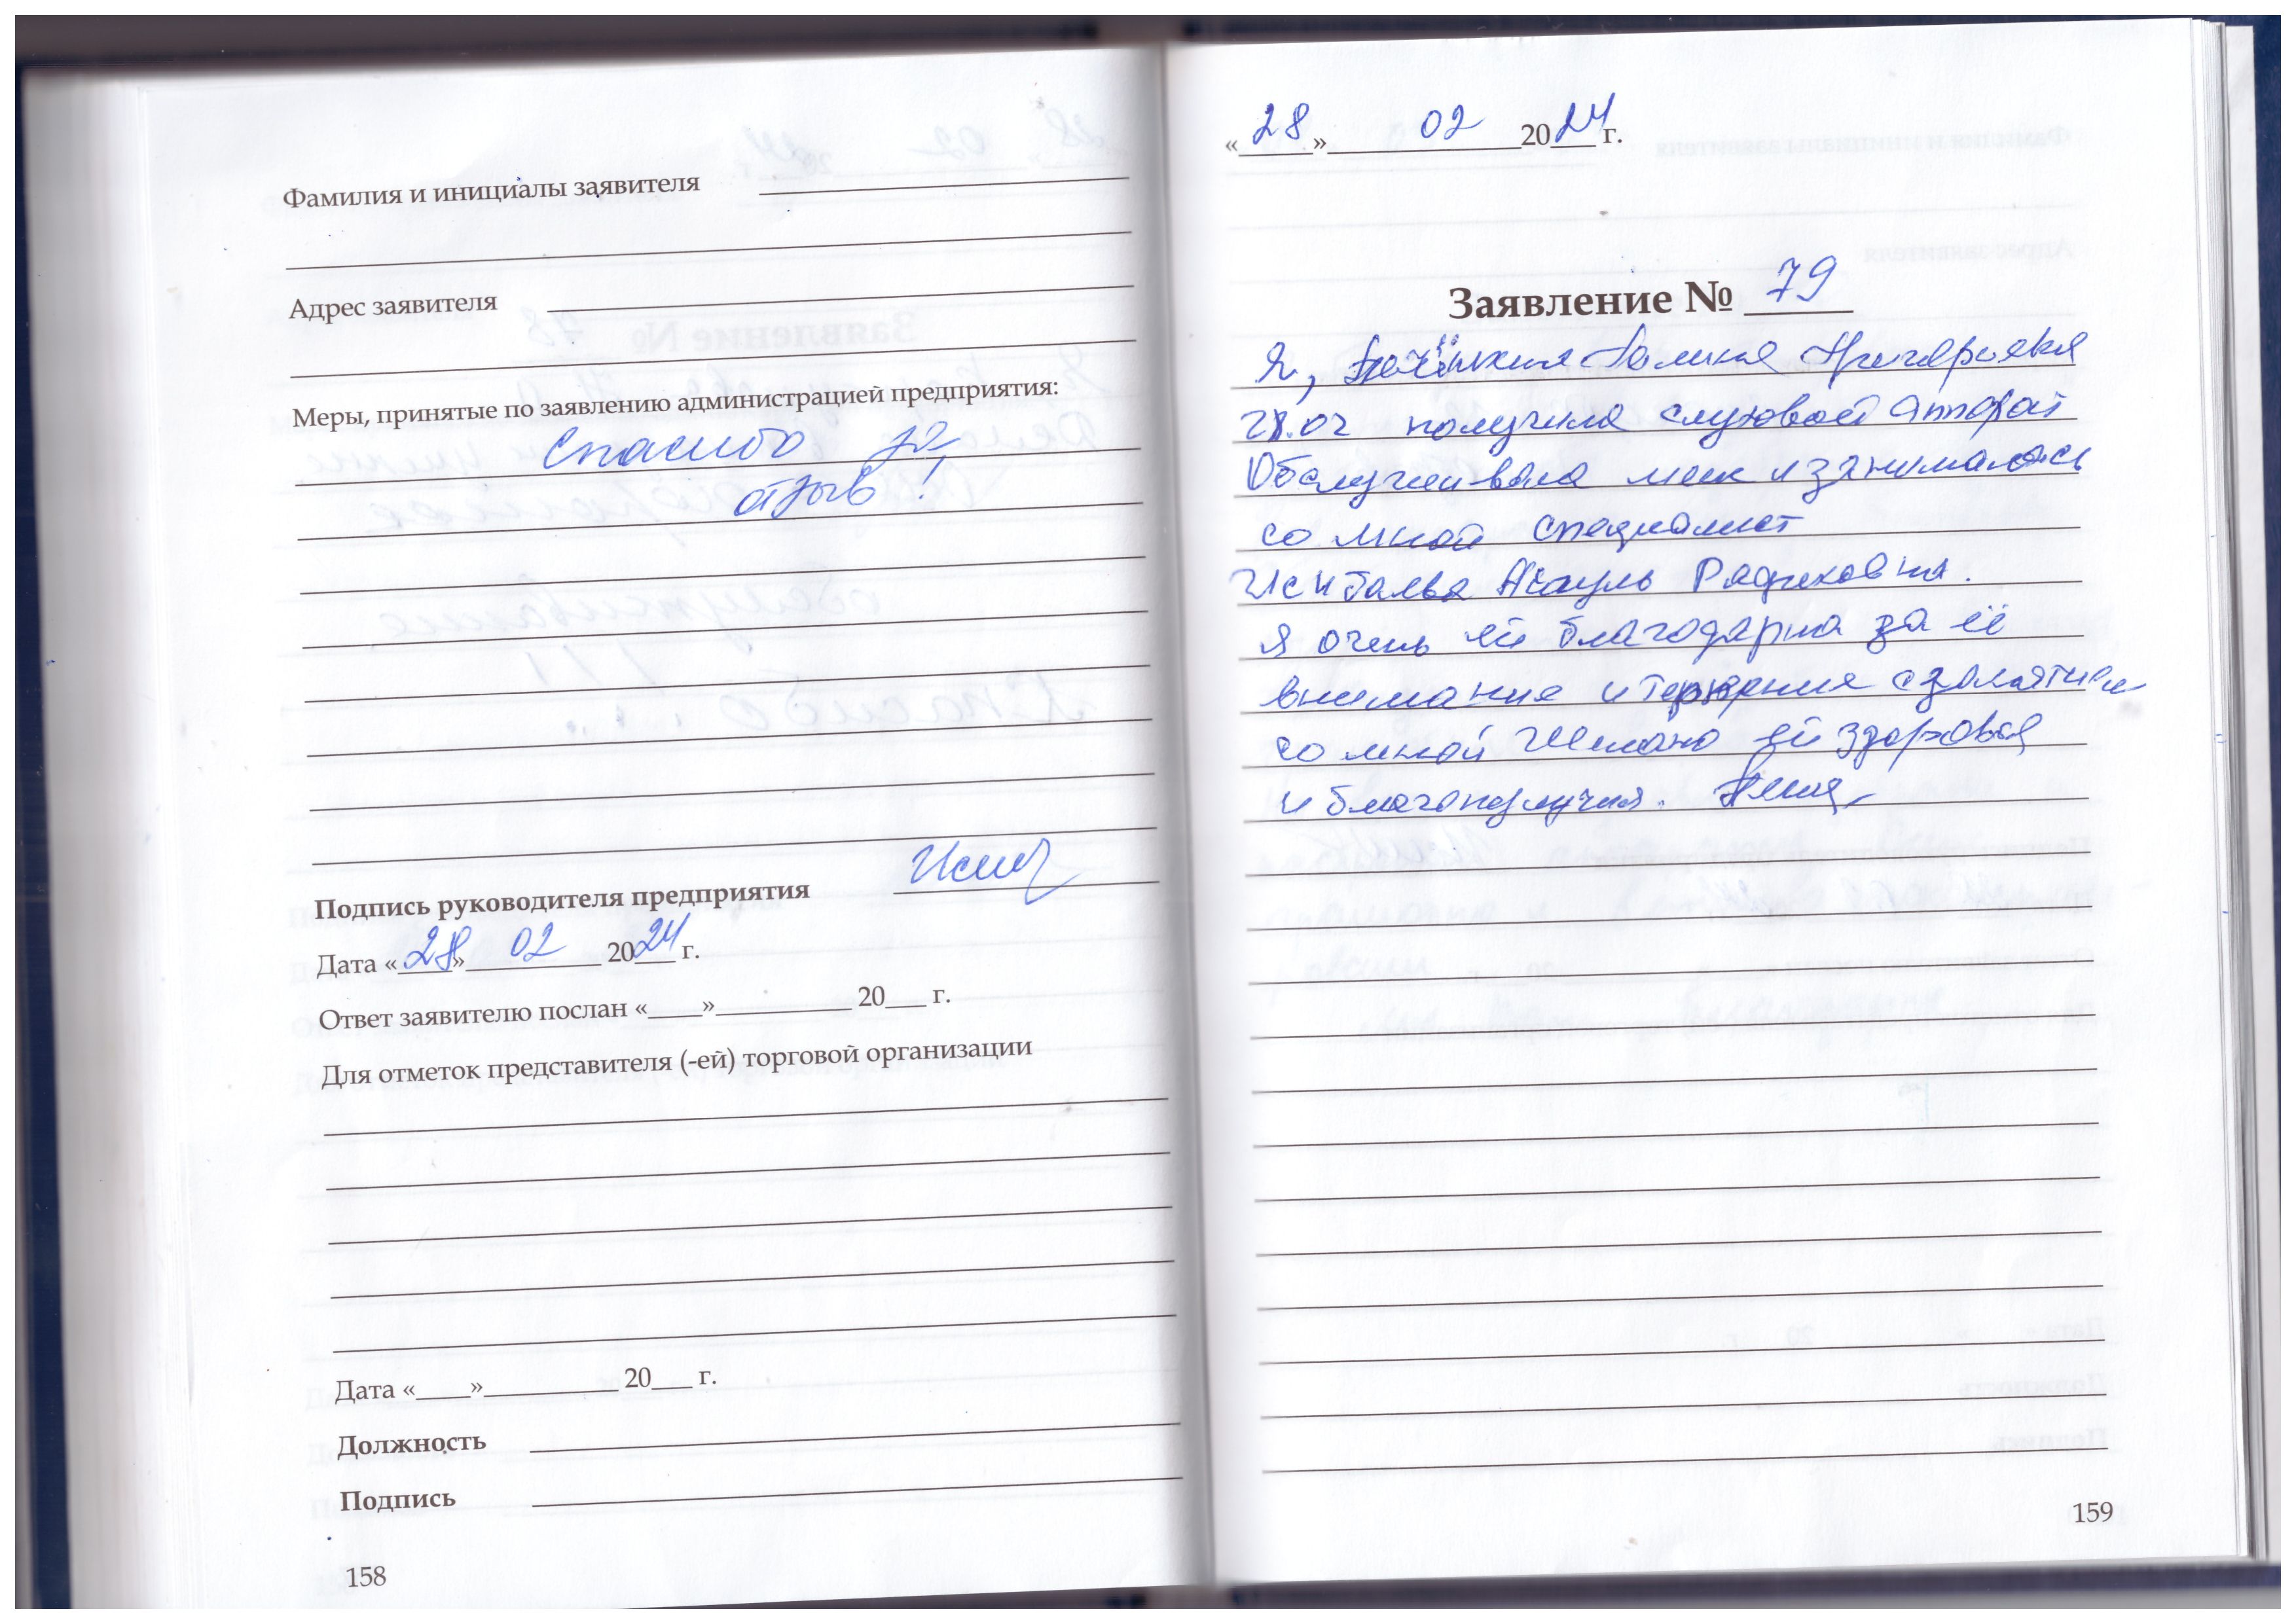 Фамилия и инициалы заявителя
Адрес заявителя
Меры, принятые по заявлению администрацией предприятия:
Спасибо за
отзыв!
Подпись руководителя предприятия
Дата «28» 02 2024 г.
Ответ заявителю послан «____»__________ 20___ г.
Для отметок представителя (-ей) торговой организации
Дата «____»__________ 20___ г.
Должность
Подпись
158
«28» 02 2024 г.
Заявление № 79
Я, Галина Григорьевна
получила слуховой аппарат
Обслуживала меня и занималась
со мной специалист
Айгуль Рафиковна.
Я очень ей благодарна за её
внимание и терпение с занятием
со мной Желаю ей здоровья
и благополучия.
159